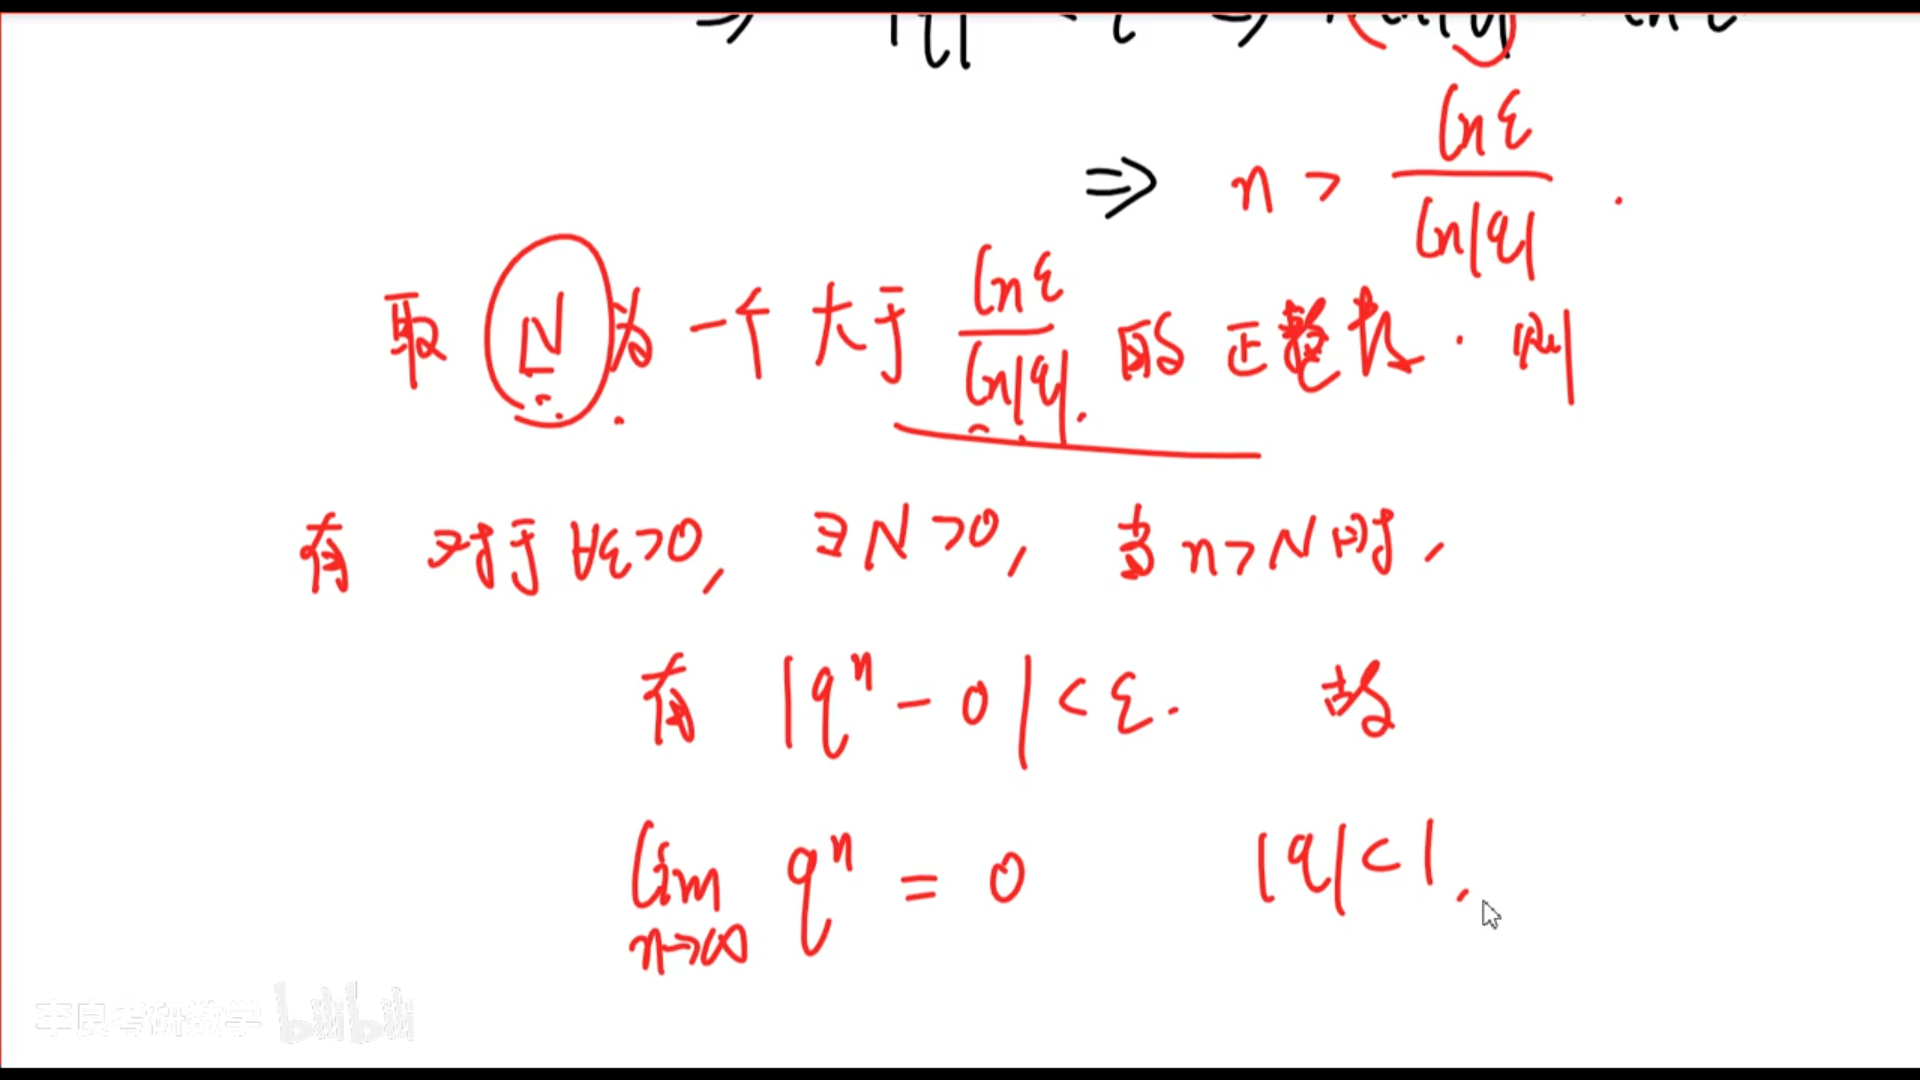 ⇒ n > ln ε / ln|q| .
取 N 为一个大于 ln ε / ln|q| 的正整数. 则
有 对于 ∀ε>0, ∃N>0, 当 n>N 时,
有 |qⁿ - 0| < ε. 故
lim n→∞ qⁿ = 0 |q| < 1.
李良考研数学 bilibili